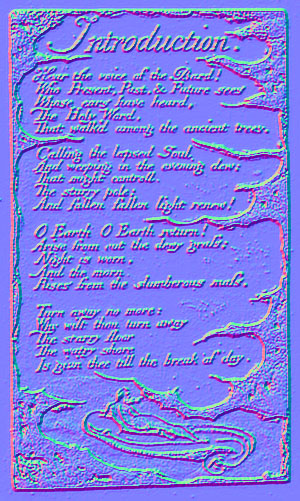 Introduction.
Hear the voice of the Bard!
Who Present, Past, & Future sees
Whose ears have heard,
The Holy Word,
That walk'd among the ancient trees.
Calling the lapsed Soul
And weeping in the evening dew:
That might controll.
The starry pole:
And fallen fallen light renew!
O Earth O Earth return!
Arise from out the dewy grass:
Night is worn,
And the morn
Rises from the slumberous mass.
Turn away no more:
Why wilt thou turn away
The starry floor
The watry shore
Is giv'n thee till the break of day.